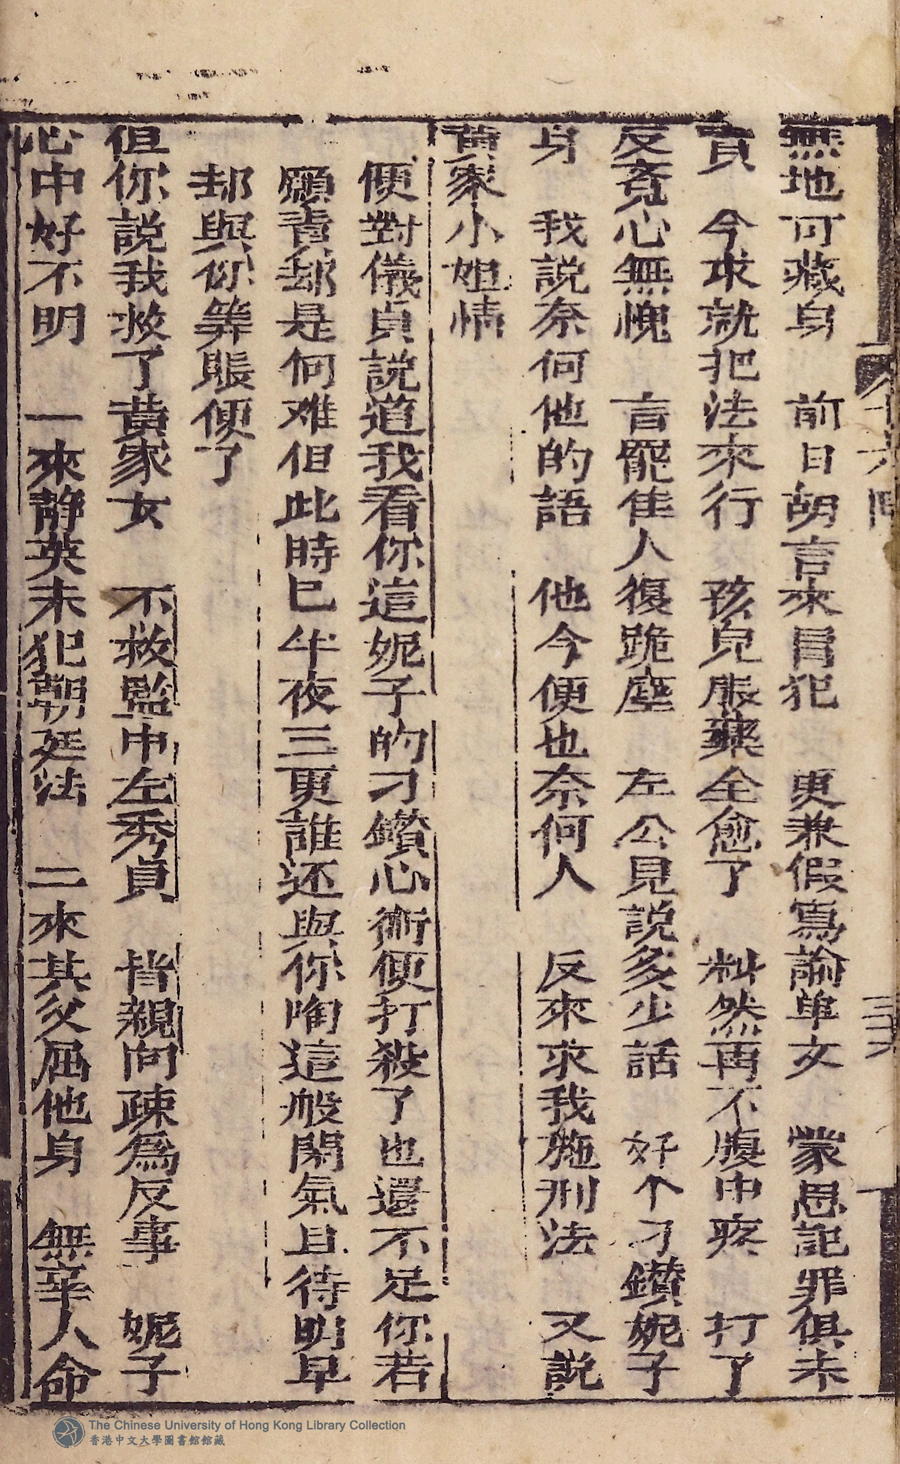 無地可藏身　前日胡言來冒犯　更兼假寫諭單文　蒙恩記罪俱未
責　今求就把法來行　孩兒服藥全愈了　料然再不腹中疼　打了
反覺心無愧　言罷佳人復跪塵　左公見説多少話　好个刁鑽妮子
身　我説奈何他的語　他今便也奈何人　反來求我施刑法　又説
黃家小姐情
便對儀貞説道我看你這妮子的刁鑽心術便打殺了也還不足你若
願責却是何难但此時已半夜三更誰还與你啕這般閑氣且待明早
却與你筭賬便了
但你説我救了黃家女　不救監中左秀貞　皆親向疎爲反事　妮子
心中好不明　一來靜英未犯朝廷法　二來其父屈他身　無辜人命
十六囬
三六
The Chinese University of Hong Kong Library Collection
香港中文大學圖書館館藏